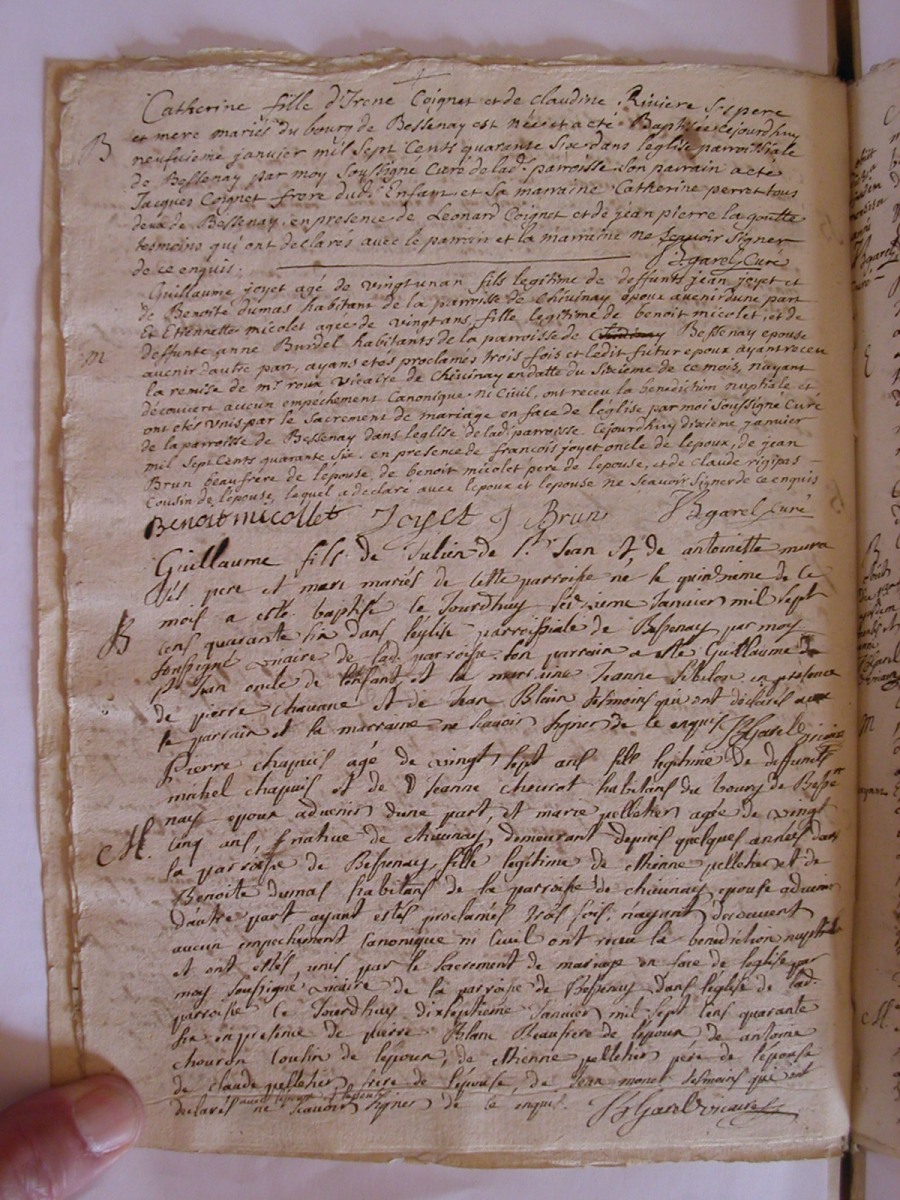 Catherine fille d'Irene Coignet et de claudine Riviere Ses pere
B
et mere mariés du bourg de Bessenay est née et a eté Baptisée cejourdhuy
neufvieme janvier mil Sept Cents quarente Six dans leglise parroissiale
de Bessenay par moy Soussigné Curé de lad. parroisse Son parrain a eté
Jacques Coignet frere dud. Enfant et Sa marraine Catherine perret tous
deux de Bessenay, en presence de Leonard Coignet et de jean pierre la goutte
tesmoins qui ont declarés avec le parrain et la marraine ne Sçavoir Signer
de ce enquis. Bgarel Curé
Guillaume joyet agé de vingt un an fils legitime de deffunts jean joyet et
de Benoite dumas habitant de la parroisse de Chevinay epoux avenir dune part
Et Etiennette micolet agee de vingt ans, fille legitime de benoit micolet, et de
M
deffunte anne Burdel habitants de la parroisse de Bessenay epouse
avenir dautre part, ayans etés proclamés trois fois et ledit futur epoux ayant receu
la remise de mr. roux vicaire de Chevinay en datte du Sixieme de ce mois, nayant
découvert aucun empechement Canonique ni Civil, ont receu la benediction nuptiale et
ont etés Unis par le Sacrement de mariage en face de leglise par moi Soussigné Curé
de la parroisse de Bessenay dans leglise de lad. parroisse. Cejourdhuy dixieme janvier
mil Sept Cents quarante Six. en presence de françois joyet oncle de lepoux, de jean
Brun beaufrere de lépouse, de benoit micolet pere de lepouse, et de Claude
Cousin de lépouse, lequel a declaré avec lepoux et lepouse ne Sçavoir Signer de ce enquis
Benoit micollet Joyet J Brun Bgarel Curé
Guillaume fils de Julien de St. Jean et de antoinette
Ses pere et mere mariés de cette parroisse né le quinzieme de ce
mois a esté baptisé ce Jourdhuy Seizieme Janvier mil Sept
B
Cens quarante Six dans léglise parroissiale de Bessenay par moy
Soussigné vicaire de lad. parroisse. Son parrain a esté Guillaume de
St Jean oncle de lenfant et la marraine Jeanne Sibelon en presence
de pierre chavane et de Jean Blain tesmoins qui ont déclarés avec
le parrain et la marraine ne Scavoir Signer de ce enquis Garel vicaire
Pierre chapuis agé de vingt Sept ans fils legitime de deffunts
michel chapuis et de Jeanne habitans du bourg de Besse
nay epoux advenir dune part, et marie pelletier agée de vingt
M.
cinq ans, native de chevinay, demeurant depuis quelques années dans
la parroisse de Bessenay fille legitime de ethienne pelletier et de
Benoite dumas habitans de la parroisse de chevinay epouse advenir
dautre part ayant estés proclamés trois fois, nayant découvert
aucun empechement Canonique ni Civil ont receu la benediction nuptialle
et ont estés unis par le Sacrement de mariage en face de leglise par
moy Soussigné vicaire de la parroisse de Bessenay dans léglise de lad.
parroisse ce Jourdhuy dixseptieme Janvier mil Sept Cens quarante
Six en presence de pierre Blanc Beaufrere de lepoux, de antoine
Cousin de lepoux, de ethienne pelletier pére de lepouse
de claude pelletier frere de lépouse, de Jean monet tesmoins qui ont
declarés avec lepoux et lepouse ne Scavoir Signer de ce enquis. Garel vicaire